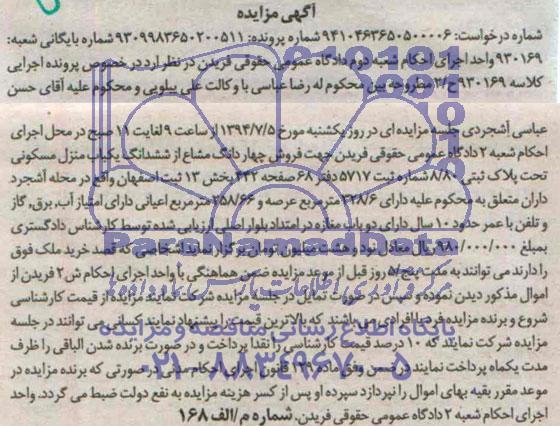 آگهی مزایده
شماره درخواست: ۹۴۱۰۴۶۳۶۵۰۵۰۰۰۰۶ شماره پرونده: ۹۳۰۹۹۸۳۶۵۰۲۰۰۵۱۱ شماره بایگانی شعبه:
۹۳۰۱۶۹ واحد اجرای احکام شعبه دوم دادگاه عمومی حقوقی فریدن در نظر دارد در خصوص پرونده اجرایی
کلاسه ۹۳۰۱۶۹ ج/۲ مطروحه بین محکوم له رضا عباسی با وکالت علی بیلویی و محکوم علیه آقای حسن
عباسی آشجردی جلسه مزایده ای در روز یکشنبه مورخ ۱۳۹۴/۷/۵ از ساعت ۹ لغایت ۱۱ صبح در محل اجرای
احکام شعبه ۲ دادگاه عمومی حقوقی فریدن جهت فروش چهار دانگ مشاع از ششدانگ یکباب منزل مسکونی
تحت پلاک ثبتی ۸/۸۰ شماره ثبت ۵۷۱۷ دفتر ۶۸ صفحه ۴۴۲ بخش ۱۳ ثبت اصفهان واقع در محله آشجرد
داران متعلق به محکوم علیه دارای ۳۲۸/۶ مترمربع عرصه و ۲۵۸/۶۶ مترمربع اعیانی دارای امتیاز آب، برق، گاز
و تلفن با عمر حدود ۱۰ سال دارای دو باب مغازه در امتداد بلوار اصلی ارزیابی شده توسط کارشناس دادگستری
بمبلغ ۹۸۰/۰۰۰/۰۰۰ ریال معادل نود و هشت میلیون تومان برگزار نماید اشخاصی که قصد خرید ملک فوق
را دارند می توانند به مدت پنج/۵ روز قبل از موعد مزایده ضمن هماهنگی با واحد اجرای احکام ش ۲ فریدن از
اموال مذکور دیدن نموده و سپس در صورت تمایل در جلسه مزایده شرکت نمایند مزایده از قیمت کارشناسی
شروع و برنده مزایده فرد یا افرادی می باشند که بالاترین قیمت را پیشنهاد نمایند کسانی می توانند در جلسه
مزایده شرکت نمایند که ۱۰ درصد قیمت کارشناسی را نقدا پرداخت و در صورت برنده شدن الباقی را ظرف
مدت یکماه پرداخت نمایند در ضمن وفق ماده ۱۲۹ قانون اجرای احکام مدنی در صورتی که برنده مزایده در
موعد مقرر بقیه بهای اموال را نپردازد سپرده او پس از کسر هزینه مزایده به نفع دولت ضبط می گردد. واحد
اجرای احکام شعبه ۲ دادگاه عمومی حقوقی فریدن. شماره م/الف ۱۶۸
ParsNamadData
پایگاه اطلاع رسانی مناقصه و مزایده
۰۲۱-۸۸۳۴۹۶۷۰-۵